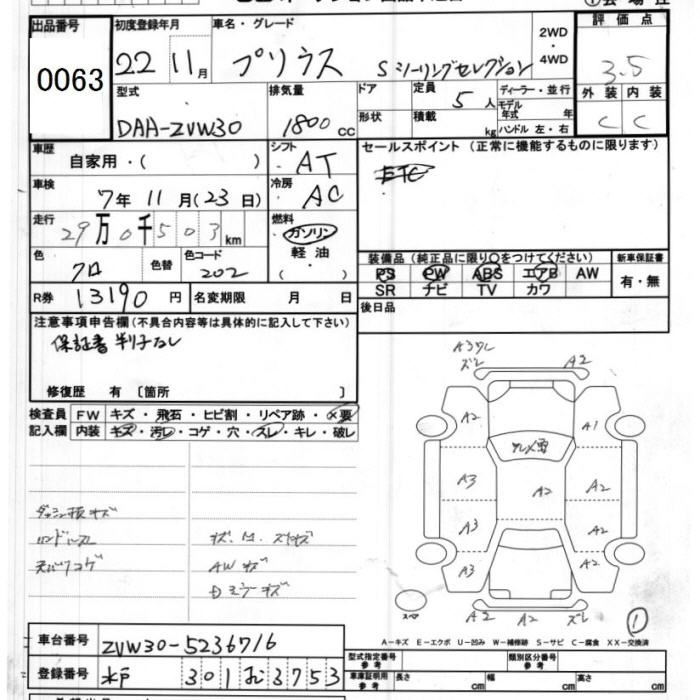 出品番号 初度登録年月 車名・グレード 2WD・4WD 評価点
0063 22 11月 プリウス Sツーリングセレクション 3.5
型式 排気量 ドア 定員 5人 ディーラー・並行 外装 内装
DAA-ZVW30 1800cc 形状 積載 kg モデル年式 年 ハンドル 左・右 C C
車歴 自家用・( ) シフト AT セールスポイント (正常に機能するものに限ります)
車検 7年11月(23日) 冷房 AC ETC
走行 29万0千503km 燃料 ガソリン 軽油・( )
色 クロ 色替 色コード 202 装備品(純正品に限り○をつけてください) 新車保証書
PS PW ABS エアB AW 有・無
SR ナビ TV カワ
R券 13190円 名変期限 月 日 後日品
注意事項申告欄(不具合内容等は具体的に記入して下さい)
保証書
修復歴 有 〔箇所 〕
検査員 FW キズ・飛石・ヒビ割・リペア跡・×要
記入欄 内装 キズ・汚レ・コゲ・穴・スレ・キレ・破レ
ズレ A2
A2 A1
A3 A2 A2
A3 A2
A3 A2
スペア A2 A2 ズレ
ハンドルスレ
AWキズ
①
A-キズ E-エクボ U-凹み W-補修跡 S-サビ C-腐食 XX-交換済
車台番号 ZVW30-5236716 型式指定番号 参考 類別区分番号 参考
登録番号 水戸 301 お 3753 車庫証明用 参考 長さ cm 幅 cm 高さ cm